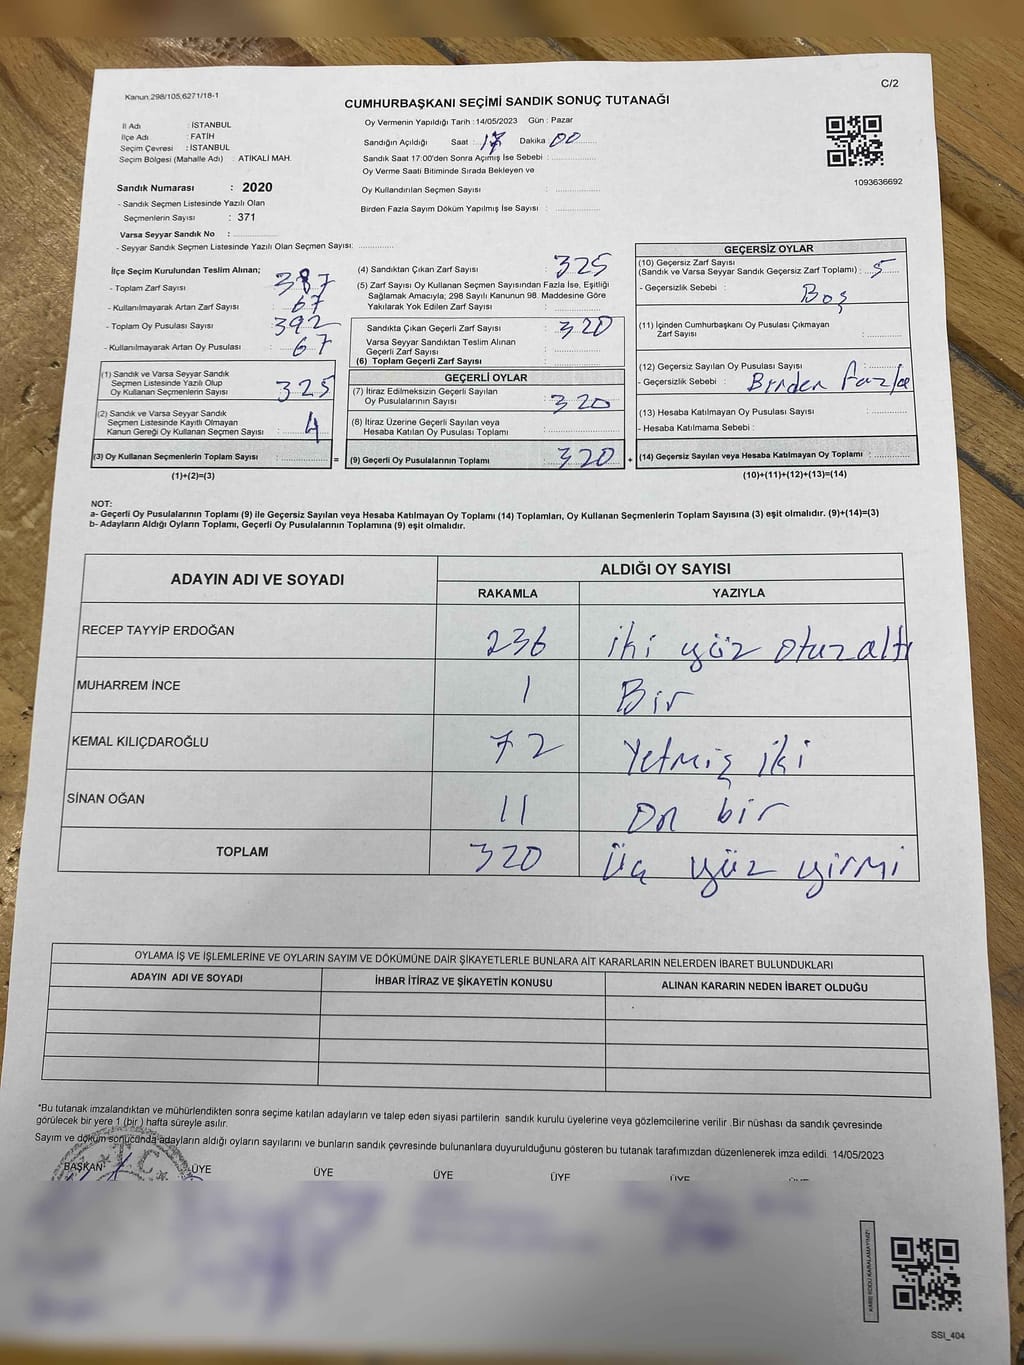 Kanun:298/105,6271/18-1
C/2
CUMHURBAŞKANI SEÇİMİ SANDIK SONUÇ TUTANAĞI
İl Adı : İSTANBUL
İlçe Adı : FATİH
Seçim Çevresi : İSTANBUL
Seçim Bölgesi (Mahalle Adı) : ATİKALİ MAH.
Sandık Numarası : 2020
- Sandık Seçmen Listesinde Yazılı Olan
Seçmenlerin Sayısı : 371
Varsa Seyyar Sandık No : ............
- Seyyar Sandık Seçmen Listesinde Yazılı Olan Seçmen Sayısı: ............
Oy Vermenin Yapıldığı Tarih : 14/05/2023 Gün : Pazar
Sandığın Açıldığı Saat : 17 Dakika 00
Sandık Saat 17:00'den Sonra Açımış İse Sebebi : ............
Oy Verme Saati Bitiminde Sırada Bekleyen ve
Oy Kullandırılan Seçmen Sayısı : ............
Birden Fazla Sayım Döküm Yapılmış İse Sayısı : ............
1093636692
İlçe Seçim Kurulundan Teslim Alınan;
- Toplam Zarf Sayısı : 387
- Kullanılmayarak Artan Zarf Sayısı : 67
- Toplam Oy Pusulası Sayısı : 392
- Kullanılmayarak Artan Oy Pusulası : 67
(1) Sandık ve Varsa Seyyar Sandık
Seçmen Listesinde Yazılı Olup
Oy Kullanan Seçmenlerin Sayısı : 325
(2) Sandık ve Varsa Seyyar Sandık
Seçmen Listesinde Kayıtlı Olmayan
Kanun Gereği Oy Kullanan Seçmen Sayısı : 4
(3) Oy Kullanan Seçmenlerin Toplam Sayısı : ............ =
(1)+(2)=(3)
(4) Sandıktan Çıkan Zarf Sayısı : 325
(5) Zarf Sayısı Oy Kullanan Seçmen Sayısından Fazla İse, Eşitliği
Sağlamak Amacıyla; 298 Sayılı Kanunun 98. Maddesine Göre
Yakılarak Yok Edilen Zarf Sayısı : ............
Sandıkta Çıkan Geçerli Zarf Sayısı : 320
Varsa Seyyar Sandıktan Teslim Alınan
Geçerli Zarf Sayısı : ............
(6) Toplam Geçerli Zarf Sayısı
GEÇERLİ OYLAR
(7) İtiraz Edilmeksizin Geçerli Sayılan
Oy Pusulalarının Sayısı : 320
(8) İtiraz Üzerine Geçerli Sayılan veya
Hesaba Katılan Oy Pusulası Toplamı : ............
(9) Geçerli Oy Pusulalarının Toplamı : 320 +
GEÇERSİZ OYLAR
(10) Geçersiz Zarf Sayısı
(Sandık ve Varsa Seyyar Sandık Geçersiz Zarf Toplamı) : 5
- Geçersizlik Sebebi : Boş
(11) İçinden Cumhurbaşkanı Oy Pusulası Çıkmayan
Zarf Sayısı : ............
(12) Geçersiz Sayılan Oy Pusulası Sayısı : ............
- Geçersizlik Sebebi : Birden fazla
(13) Hesaba Katılmayan Oy Pusulası Sayısı : ............
- Hesaba Katılmama Sebebi :
(14) Geçersiz Sayılan veya Hesaba Katılmayan Oy Toplamı : ............
(10)+(11)+(12)+(13)=(14)
NOT:
a- Geçerli Oy Pusulalarının Toplamı (9) ile Geçersiz Sayılan veya Hesaba Katılmayan Oy Toplamı (14) Toplamları, Oy Kullanan Seçmenlerin Toplam Sayısına (3) eşit olmalıdır. (9)+(14)=(3)
b- Adayların Aldığı Oyların Toplamı, Geçerli Oy Pusulalarının Toplamına (9) eşit olmalıdır.
ADAYIN ADI VE SOYADI ALDIĞI OY SAYISI
RAKAMLA YAZIYLA
RECEP TAYYİP ERDOĞAN 236 iki yüz otuz altı
MUHARREM İNCE 1 Bir
KEMAL KILIÇDAROĞLU 72 Yetmiş iki
SİNAN OĞAN 11 On bir
TOPLAM 320 Üç yüz yirmi
OYLAMA İŞ VE İŞLEMLERİNE VE OYLARIN SAYIM VE DÖKÜMÜNE DAİR ŞİKAYETLERLE BUNLARA AİT KARARLARIN NELERDEN İBARET BULUNDUKLARI
ADAYIN ADI VE SOYADI İHBAR İTİRAZ VE ŞİKAYETİN KONUSU ALINAN KARARIN NEDEN İBARET OLDUĞU
*Bu tutanak imzalandıktan ve mühürlendikten sonra seçime katılan adayların ve talep eden siyasi partilerin sandık kurulu üyelerine veya gözlemcilerine verilir .Bir nüshası da sandık çevresinde
görülecek bir yere 1 (bir ) hafta süreyle asılır.
Sayım ve döküm sonucunda adayların aldığı oyların sayılarını ve bunların sandık çevresinde bulunanlara duyurulduğunu gösteren bu tutanak tarafımızdan düzenlenerek imza edildi. 14/05/2023
T.C.
BAŞKAN ÜYE ÜYE ÜYE ÜYE ÜYE
KARE KODU KARALAMAYINIZ!
SSI_404